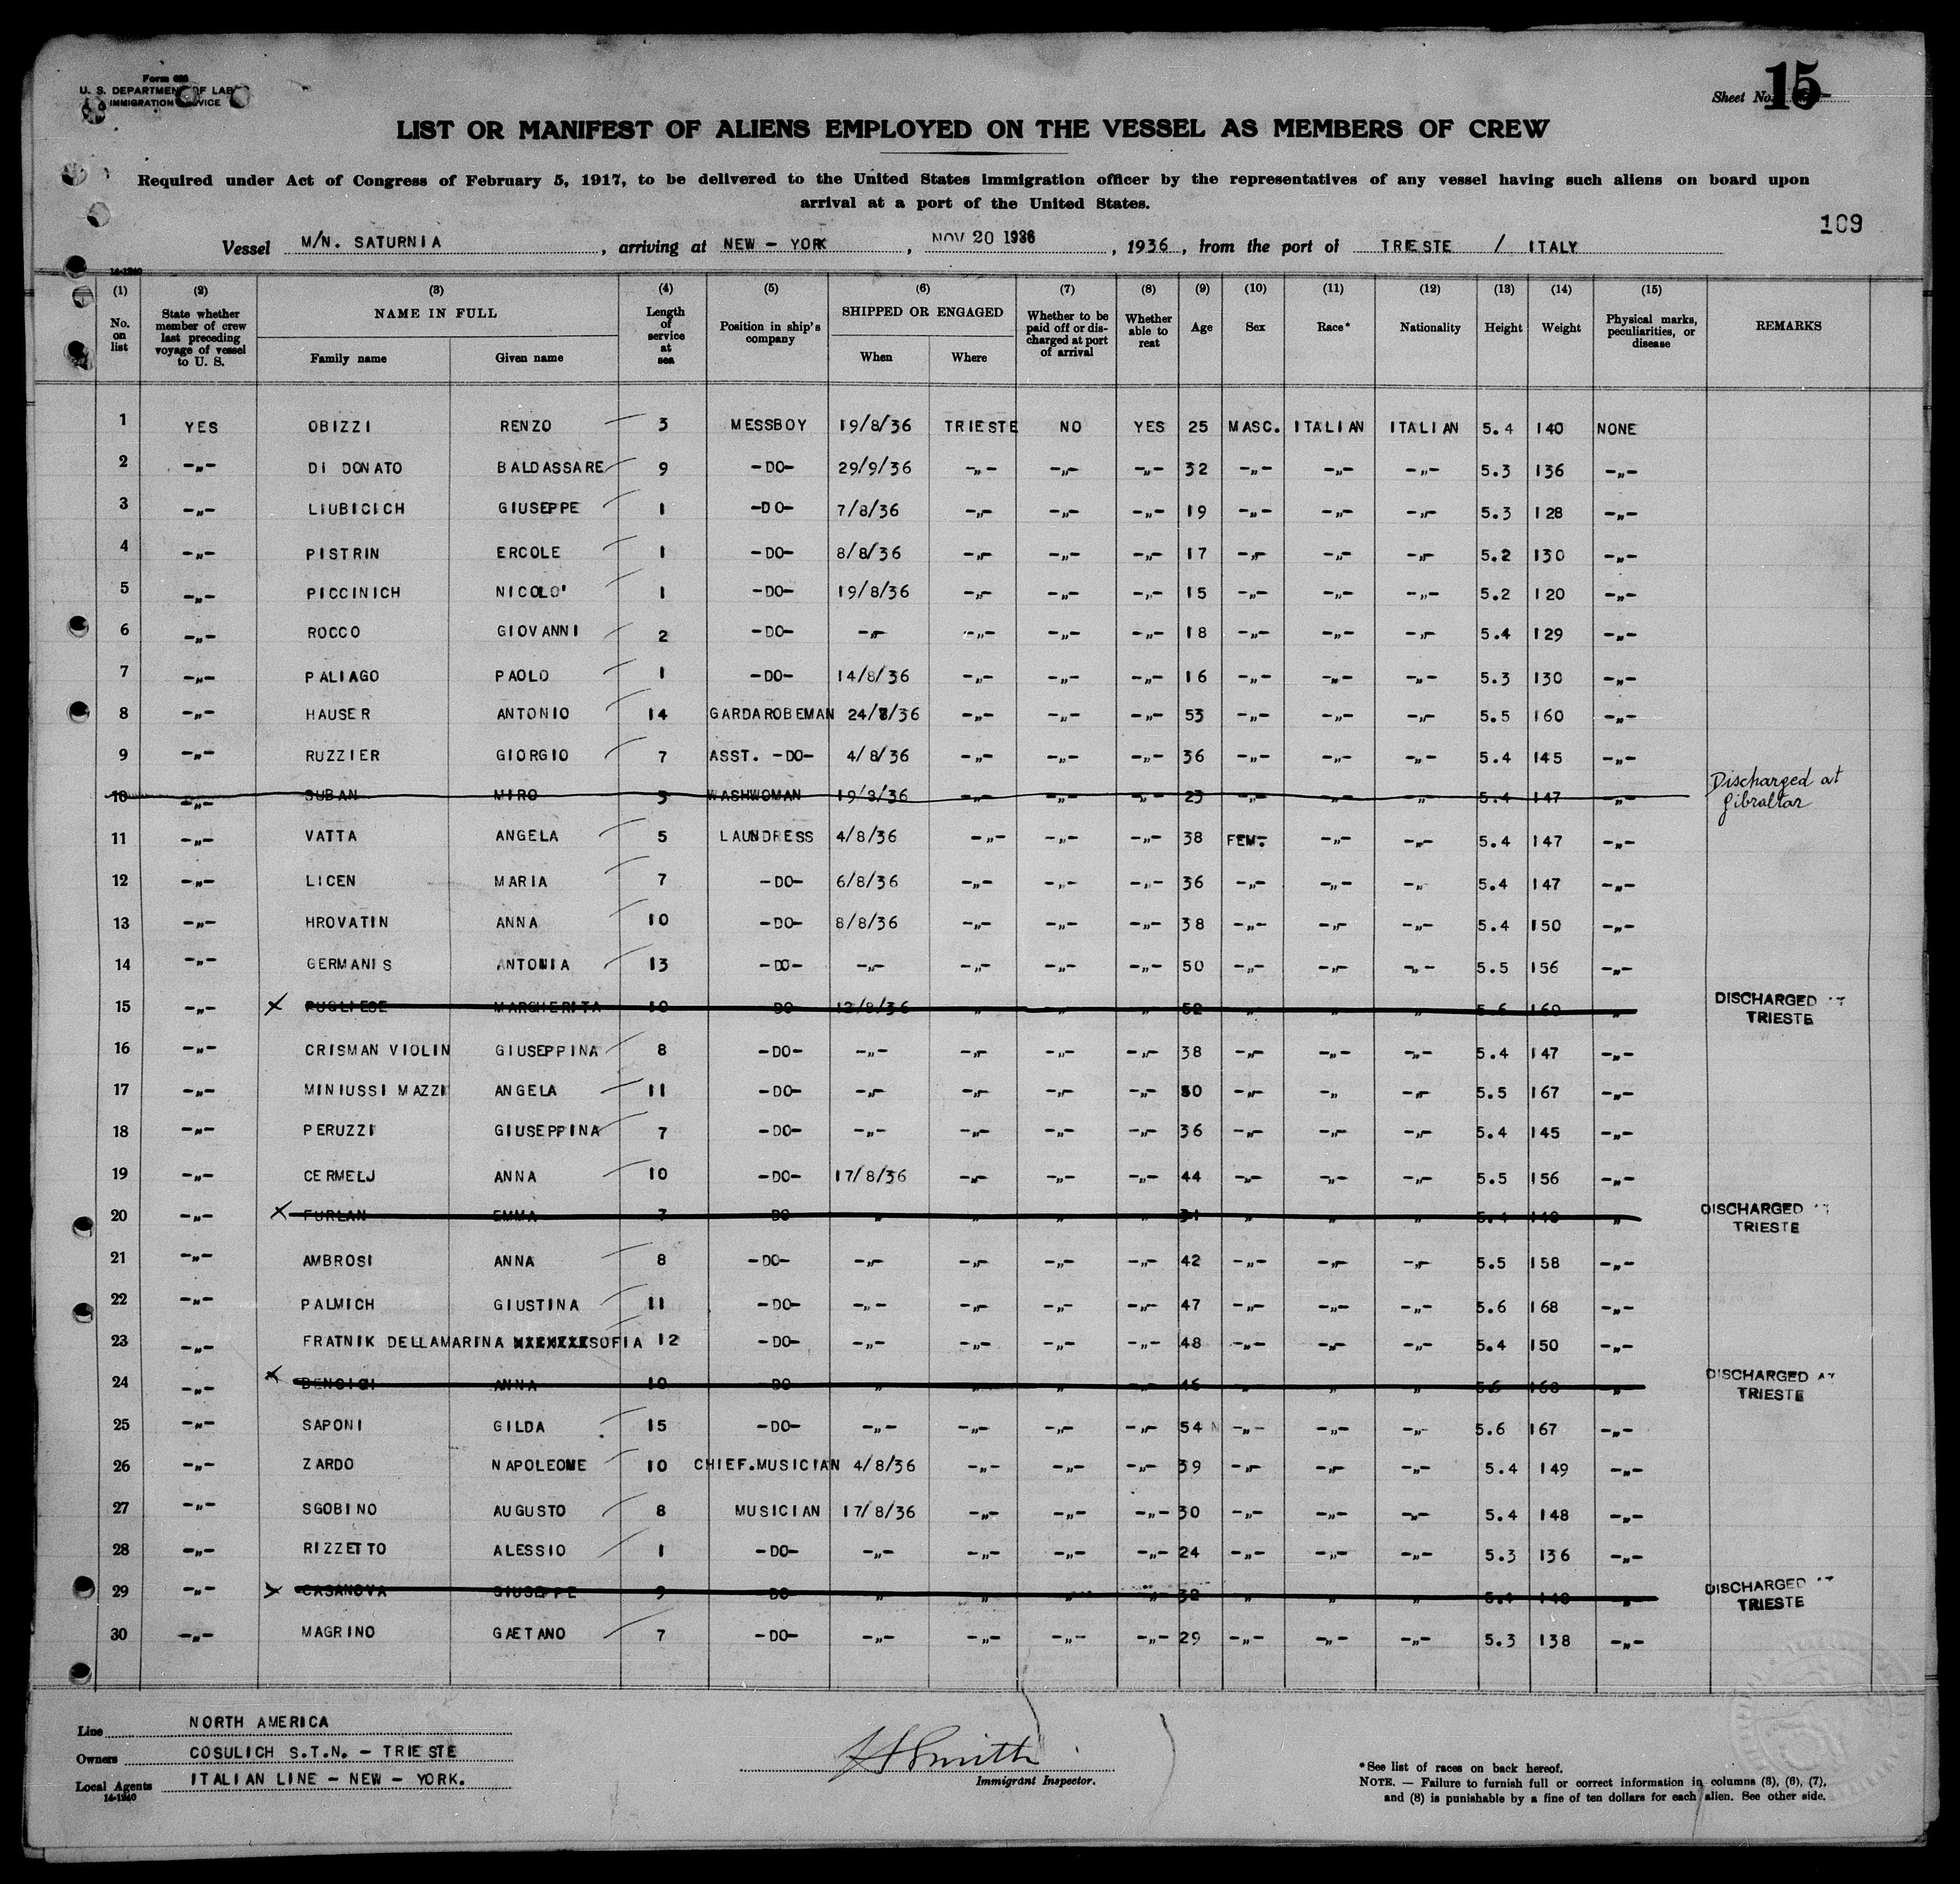 Form 688
U. S. DEPARTMENT OF LABOR
IMMIGRATION SERVICE
Sheet No. 15
LIST OR MANIFEST OF ALIENS EMPLOYED ON THE VESSEL AS MEMBERS OF CREW
Required under Act of Congress of February 5, 1917, to be delivered to the United States immigration officer by the representatives of any vessel having such aliens on board upon
arrival at a port of the United States.
109
Vessel M/N. SATURNIA , arriving at NEW - YORK , NOV 20 1936 , 1936 , from the port of TRIESTE / ITALY
14-1240
(1) No. on list (2) State whether member of crew last preceding voyage of vessel to U. S. (3) NAME IN FULL Family name Given name (4) Length of service at sea (5) Position in ship's company (6) SHIPPED OR ENGAGED When Where (7) Whether to be paid off or discharged at port of arrival (8) Whether able to read (9) Age (10) Sex (11) Race* (12) Nationality (13) Height (14) Weight (15) Physical marks, peculiarities, or disease REMARKS
1 YES OBIZZI RENZO 3 MESSBOY 19/8/36 TRIESTE NO YES 25 MASC. ITALIAN ITALIAN 5.4 140 NONE
2 -"- DI DONATO BALDASSARE 9 -DO- 29/9/36 -"- -"- -"- 32 -"- -"- -"- 5.3 136 -"-
3 -"- LIUBICICH GIUSEPPE 1 -DO- 7/8/36 -"- -"- -"- 19 -"- -"- -"- 5.3 128 -"-
4 -"- PISTRIN ERCOLE 1 -DO- 8/8/36 -"- -"- -"- 17 -"- -"- -"- 5.2 130 -"-
5 -"- PICCINICH NICOLO' 1 -DO- 19/8/36 -"- -"- -"- 15 -"- -"- -"- 5.2 120 -"-
6 -"- ROCCO GIOVANNI 2 -DO- -"- -"- -"- -"- 18 -"- -"- -"- 5.4 129 -"-
7 -"- PALIAGO PAOLO 1 -DO- 14/8/36 -"- -"- -"- 16 -"- -"- -"- 5.3 130 -"-
8 -"- HAUSER ANTONIO 14 GARDAROBEMAN 24/8/36 -"- -"- -"- 53 -"- -"- -"- 5.5 160 -"-
9 -"- RUZZIER GIORGIO 7 ASST. -DO- 4/8/36 -"- -"- -"- 36 -"- -"- -"- 5.4 145 -"-
10 -"- SUBAN MIRO 3 WASHWOMAN 19/8/36 -"- -"- -"- 23 -"- -"- -"- 5.4 147 -"- Discharged at Gibraltar
11 -"- VATTA ANGELA 5 LAUNDRESS 4/8/36 -"- -"- -"- 38 FEM. -"- -"- 5.4 147 -"-
12 -"- LICEN MARIA 7 -DO- 6/8/36 -"- -"- -"- 36 -"- -"- -"- 5.4 147 -"-
13 -"- HROVATIN ANNA 10 -DO- 8/8/36 -"- -"- -"- 38 -"- -"- -"- 5.4 150 -"-
14 -"- GERMANIS ANTONIA 13 -DO- -"- -"- -"- -"- 50 -"- -"- -"- 5.5 156 -"-
15 -"- X PUGLIESE MARGHERITA 10 DO 12/8/36 " " " 52 " " " 5.6 160 " DISCHARGED AT TRIESTE
16 -"- CRISMAN VIOLIN GIUSEPPINA 8 -DO- -"- -"- -"- -"- 38 -"- -"- -"- 5.4 147 -"-
17 -"- MINIUSSI MAZZI ANGELA 11 -DO- -"- -"- -"- -"- 50 -"- -" -"- 5.5 167 -"-
18 -"- PERUZZI GIUSEPPINA 7 -DO- -"- -"- -"- -"- 36 -"- -"- -"- 5.4 145 -"-
19 -"- CERMELJ ANNA 10 -DO- 17/8/36 -"- -"- -"- 44 -"- -"- -"- 5.5 156 -"-
20 -"- X FURLAN EMMA 7 DO " " " " " " " 5.4 " DISCHARGED AT TRIESTE
21 -"- AMBROSI ANNA 8 -DO- -"- -"- -"- -"- 42 -"- -"- -"- 5.5 158 -"-
22 -"- PALMICH GIUSTINA 11 -DO- -"- -"- -"- -"- 47 -"- -"- -"- 5.6 168 -"-
23 -"- FRATNIK DELLAMARINA SOFIA 12 -DO- -"- -"- -"- -"- 48 -"- -"- -"- 5.4 150 -"-
24 -"- X ANNA 10 DO " " " " 46 " " " 5.6 " DISCHARGED AT TRIESTE
25 -"- SAPONI GILDA 15 -DO- -"- -"- -"- -"- 54 -"- -"- -"- 5.6 167 -"-
26 -"- ZARDO NAPOLEONE 10 CHIEF.MUSICIAN 4/8/36 -"- -"- -"- 39 -"- -"- -"- 5.4 149 -"-
27 -"- SGOBINO AUGUSTO 8 MUSICIAN 17/8/36 -"- -"- -"- 30 -"- -"- -"- 5.4 148 -"-
28 -"- RIZZETTO ALESSIO 1 -DO- -"- -"- -"- -"- 24 -"- -"- -"- 5.3 136 -"-
29 -"- X CASANOVA GIUSEPPE 9 DO " " " " 32 " " " 5.4 " DISCHARGED AT TRIESTE
30 -"- MAGRINO GAETANO 7 -DO- -"- -"- -"- -"- 29 -"- -"- -"- 5.3 138 -"-
Line NORTH AMERICA
Owners COSULICH S.T.N. - TRIESTE
Local Agents ITALIAN LINE - NEW - YORK.
14-1240
Smith
Immigrant Inspector.
*See list of races on back hereof.
NOTE. — Failure to furnish full or correct information in columns (3), (6), (7),
and (8) is punishable by a fine of ten dollars for each alien. See other side.